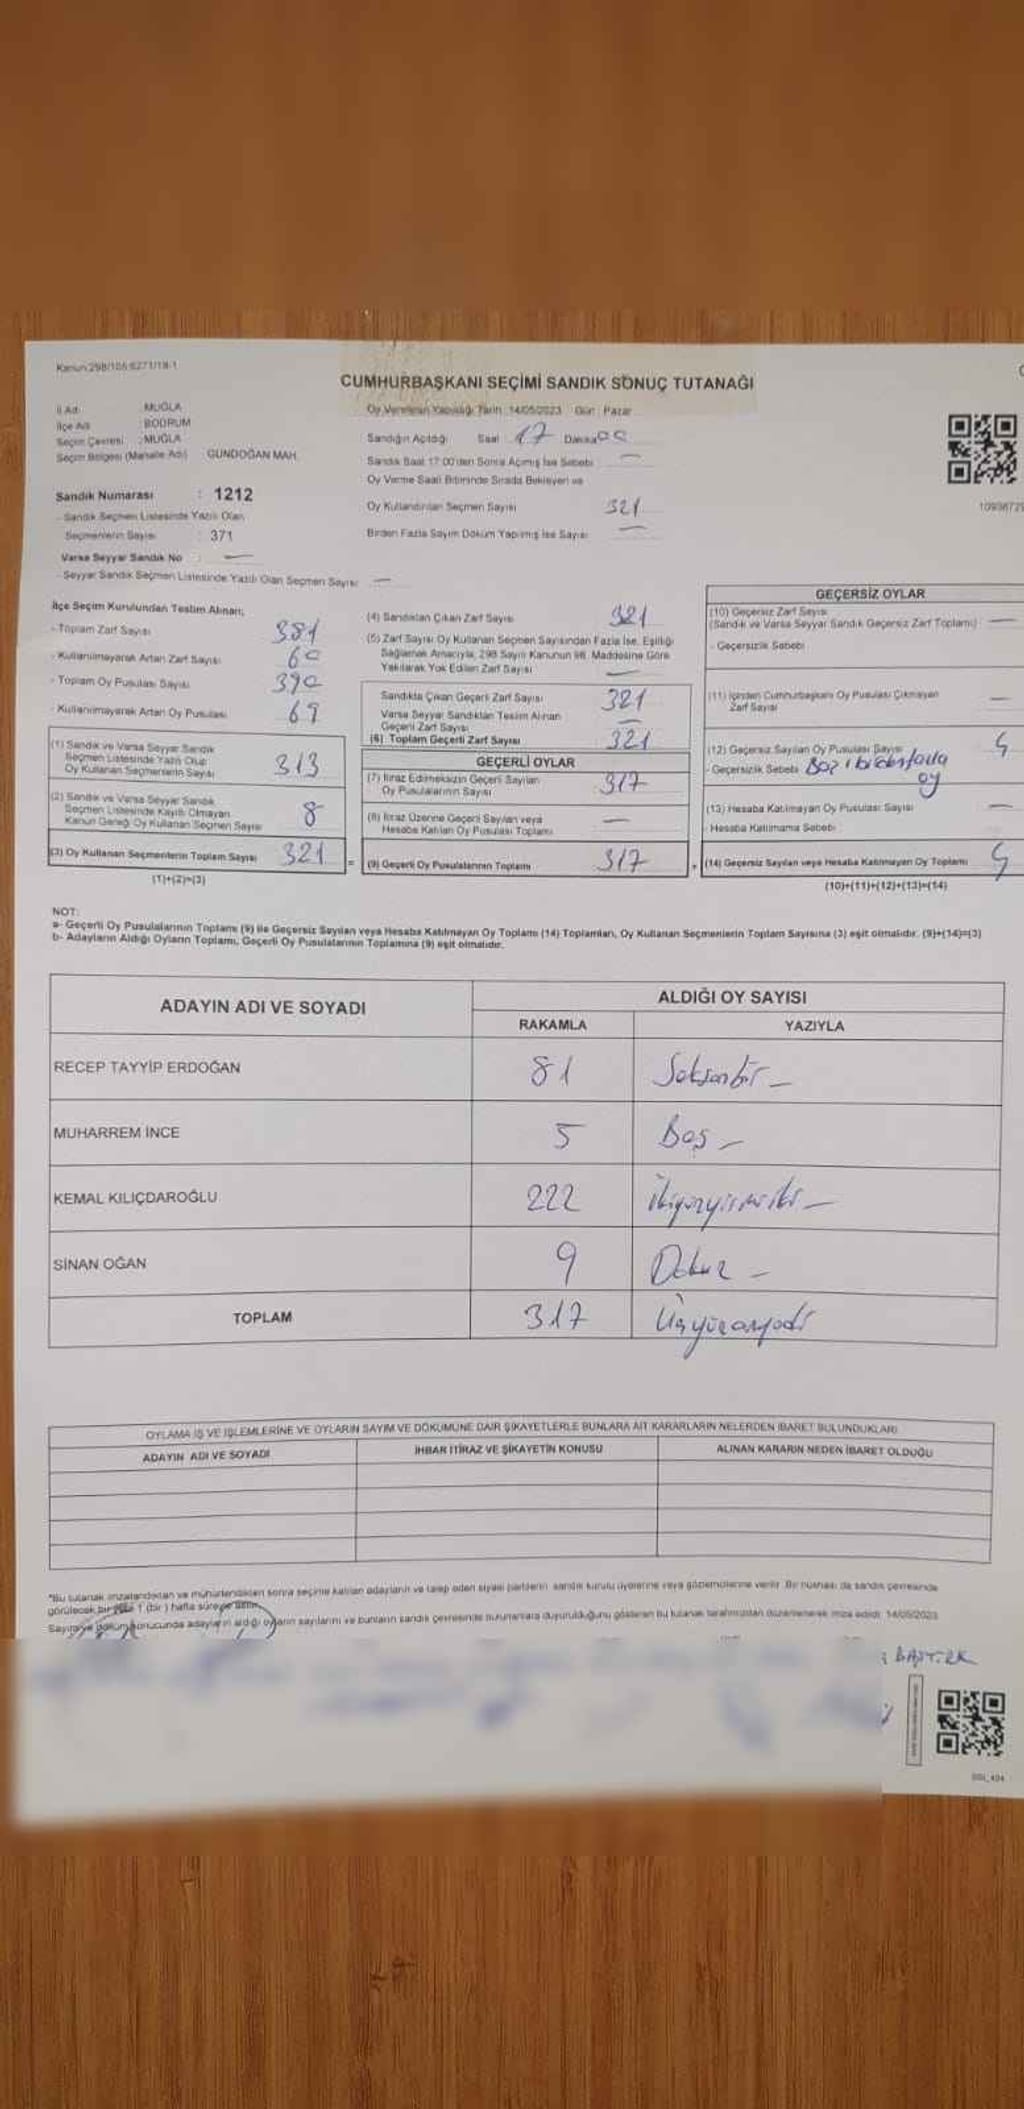 Kanun:298/105:6271/19-1
CUMHURBAŞKANI SEÇİMİ SANDIK SONUÇ TUTANAĞI
İl Adı : MUĞLA
İlçe Adı : BODRUM
Seçim Çevresi : MUĞLA
Seçim Bölgesi (Mahalle Adı) GÜNDOĞAN MAH.
Sandık Numarası : 1212
- Sandık Seçmen Listesinde Yazılı Olan
Seçmenlerin Sayısı : 371
Varsa Seyyar Sandık No : —
- Seyyar Sandık Seçmen Listesinde Yazılı Olan Seçmen Sayısı —
Oy Vermenin Yapıldığı Tarih : 14/05/2023 Gün : Pazar
Sandığın Açıldığı Saat 17 Dakika 00
Sandık Saat 17:00'den Sonra Açılmış İse Sebebi —
Oy Verme Saati Bitiminde Sırada Bekleyen ve
Oy Kullandırılan Seçmen Sayısı 321
Birden Fazla Sayım Döküm Yapılmış İse Sayısı —
İlçe Seçim Kurulundan Teslim Alınan;
- Toplam Zarf Sayısı 381
- Kullanılmayarak Artan Zarf Sayısı 60
- Toplam Oy Pusulası Sayısı 390
- Kullanılmayarak Artan Oy Pusulası 69
(1) Sandık ve Varsa Seyyar Sandık
Seçmen Listesinde Yazılı Olup
Oy Kullanan Seçmenlerin Sayısı 313
(2) Sandık ve Varsa Seyyar Sandık
Seçmen Listesinde Kayıtlı Olmayan
Kanun Gereği Oy Kullanan Seçmen Sayısı 8
(3) Oy Kullanan Seçmenlerin Toplam Sayısı 321
(1)+(2)=(3)
(4) Sandıktan Çıkan Zarf Sayısı 321
(5) Zarf Sayısı Oy Kullanan Seçmen Sayısından Fazla İse, Eşitliği
Sağlamak Amacıyla, 298 Sayılı Kanunun 98. Maddesine Göre
Yakılarak Yok Edilen Zarf Sayısı —
Sandıkta Çıkan Geçerli Zarf Sayısı 321
Varsa Seyyar Sandıktan Teslim Alınan
Geçerli Zarf Sayısı —
(6) Toplam Geçerli Zarf Sayısı 321
GEÇERLİ OYLAR
(7) İtiraz Edilmeksizin Geçerli Sayılan
Oy Pusulalarının Sayısı 317
(8) İtiraz Üzerine Geçerli Sayılan veya
Hesaba Katılan Oy Pusulası Toplamı —
= (9) Geçerli Oy Pusulalarının Toplamı 317
GEÇERSİZ OYLAR
(10) Geçersiz Zarf Sayısı
(Sandık ve Varsa Seyyar Sandık Geçersiz Zarf Toplamı) —
- Geçersizlik Sebebi
(11) İçinden Cumhurbaşkanı Oy Pusulası Çıkmayan
Zarf Sayısı —
(12) Geçersiz Sayılan Oy Pusulası Sayısı 4
- Geçersizlik Sebebi birden fazla
oy
(13) Hesaba Katılmayan Oy Pusulası Sayısı —
- Hesaba Katılmama Sebebi
+ (14) Geçersiz Sayılan veya Hesaba Katılmayan Oy Toplamı 4
(10)+(11)+(12)+(13)=(14)
NOT:
a- Geçerli Oy Pusulalarının Toplamı (9) ile Geçersiz Sayılan veya Hesaba Katılmayan Oy Toplamı (14) Toplamları, Oy Kullanan Seçmenlerin Toplam Sayısına (3) eşit olmalıdır. (9)+(14)=(3)
b- Adayların Aldığı Oyların Toplamı, Geçerli Oy Pusulalarının Toplamına (9) eşit olmalıdır.
ADAYIN ADI VE SOYADI ALDIĞI OY SAYISI
RAKAMLA YAZIYLA
RECEP TAYYİP ERDOĞAN 81 Seksenbir —
MUHARREM İNCE 5 Beş —
KEMAL KILIÇDAROĞLU 222 İkiyüzyirmiiki —
SİNAN OĞAN 9 Dokuz —
TOPLAM 317 Üçyüzonyedi
OYLAMA İŞ VE İŞLEMLERİNE VE OYLARIN SAYIM VE DÖKÜMÜNE DAİR ŞİKAYETLERLE BUNLARA AİT KARARLARIN NELERDEN İBARET BULUNDUKLARI
ADAYIN ADI VE SOYADI İHBAR İTİRAZ VE ŞİKAYETİN KONUSU ALINAN KARARIN NEDEN İBARET OLDUĞU
*Bu tutanak imzalandıktan ve mühürlendikten sonra seçime katılan adayların ve talep eden siyasi partilerin sandık kurulu üyelerine veya gözlemcilerine verilir. Bir nüshası da sandık çevresinde
görülecek bir yere 1 (bir) hafta süreyle asılır.
Sayım ve döküm sonucunda adayların aldığı oyların sayılarını ve bunların sandık çevresinde bulunanlara duyurulduğunu gösteren bu tutanak tarafımızdan düzenlenerek imza edildi. 14/05/2023